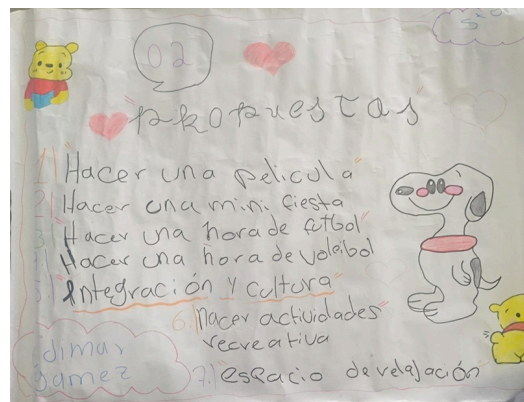 02
"propuestas"
1 "Hacer una pelicula"
2 "Hacer una mini fiesta
3 Hacer una hora de futbol"
4 Hacer una hora de voleibol
5. "Integración y cultura"
6. Hacer actividades
recreativa
7. espacio de relajación